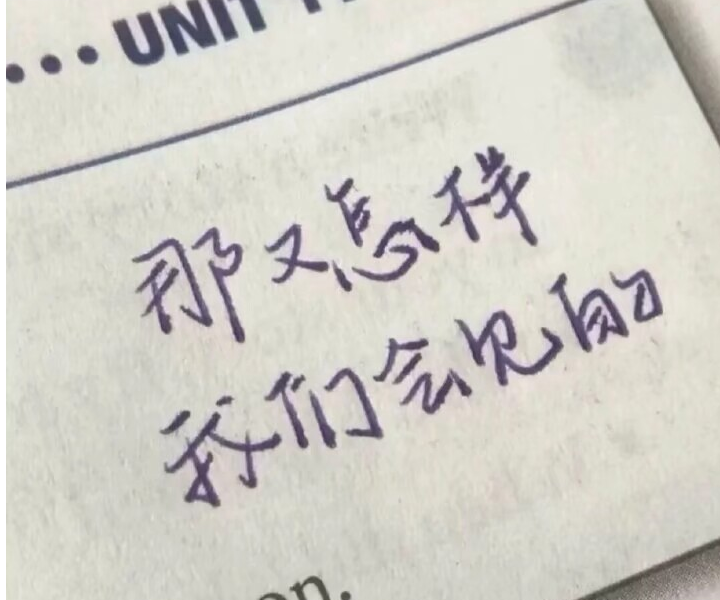 ••• UNIT
那又怎样
我们会见的
on.